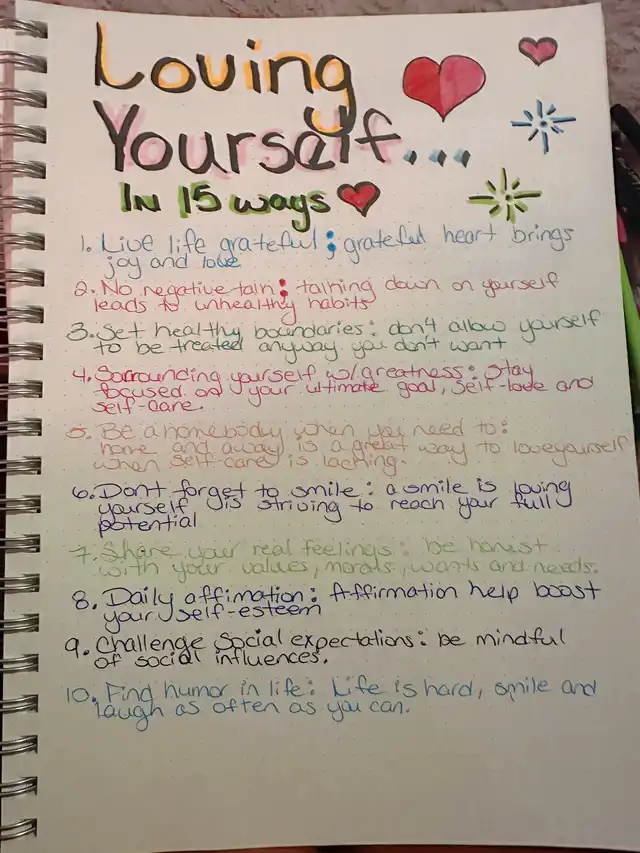 Loving
Yourself...
In 15 ways
1. Live life grateful; grateful heart brings
joy and love
2. No negative talk; talking down on yourself
leads to unhealthy habits
3. Set healthy boundaries: don't allow yourself
to be treated anyway you don't want
4. Sorrounding yourself w/greatness: stay
focused on your ultimate goal, self-love and
self-care.
5. Be a homebody when you need to:
home and away is a great way to loveyourself
when self-care is lacking.
6. Dont forget to smile: a smile is loving
yourself is striving to reach your full
potential
7. Share your real feelings: be honest
with your values, morals, wants and needs.
8. Daily affimation: Affirmation help boost
your self-esteem
9. Challenge Social expectations: be mindful
of social influences.
10. Find humor in life: Life is hard, smile and
laugh as often as you can.